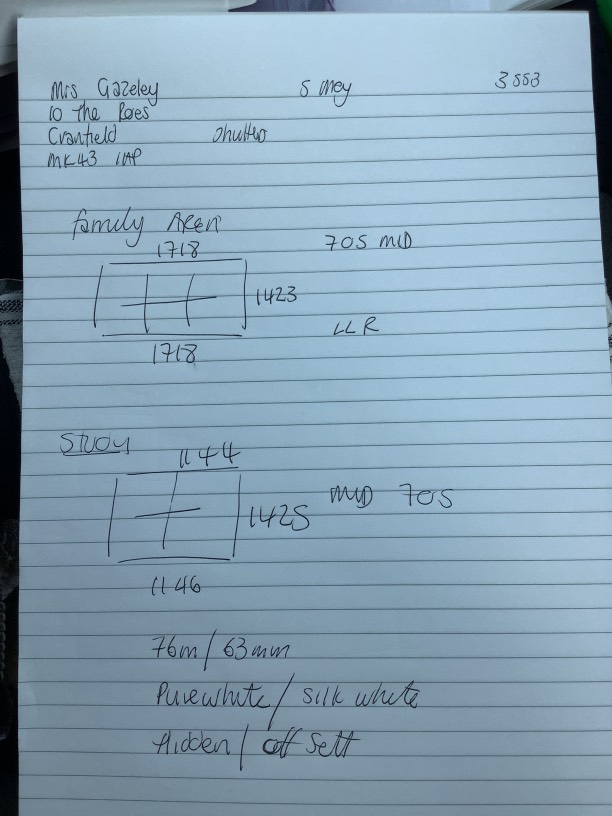 Mrs Gazeley 5 mey 3553
10 The
Cranfield
MK43 1AP
family Area
1718 705 MID
1423
LLR
1718
Study
1144
1425 MID 705
1146
76m/63mm
Purewhite/silk white
Hidden/off Sett